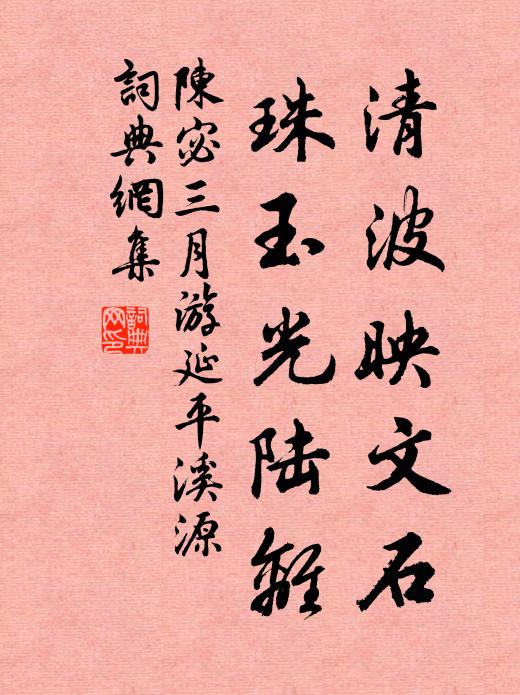 清波映文石
珠玉光陆離
陳宓三月游延平溪源
詞典網集
詞典网印